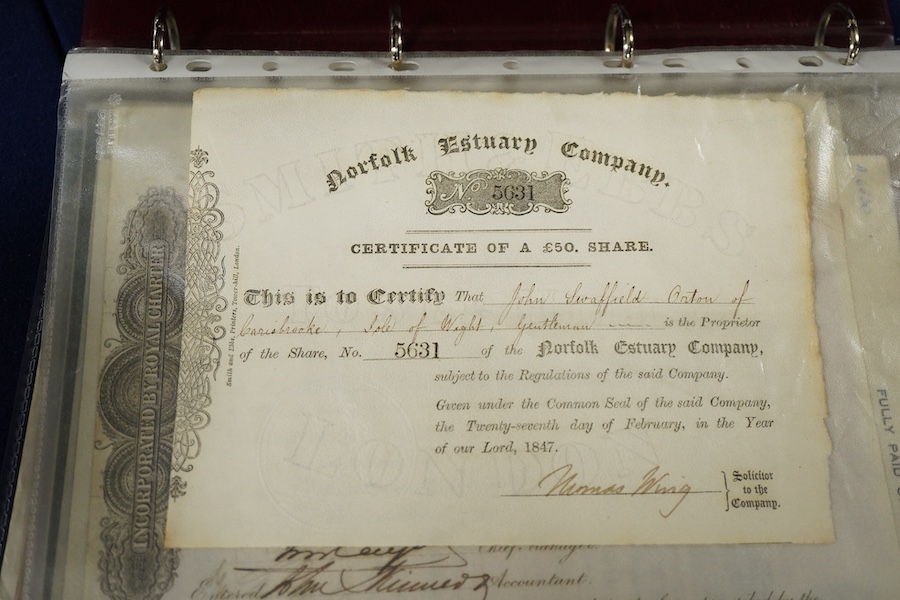 Norfolk Estuary Company.
No 5631
CERTIFICATE OF A £50. SHARE.
This is to Certify That John Swaffield Orton of
Carisbrooke, Isle of Wight, Gentleman is the Proprietor
of the Share, No. 5631 of the Norfolk Estuary Company,
subject to the Regulations of the said Company.
Given under the Common Seal of the said Company,
the Twenty-seventh day of February, in the Year
of our Lord, 1847.
Thomas Wing
Solicitor
to the
Company.
Smith and Ebbs, Printers, Tower-hill, London.
INCORPORATED BY ROYAL CHARTER
FULLY PAID
Chief Manager
Entered John Skinner Accountant.